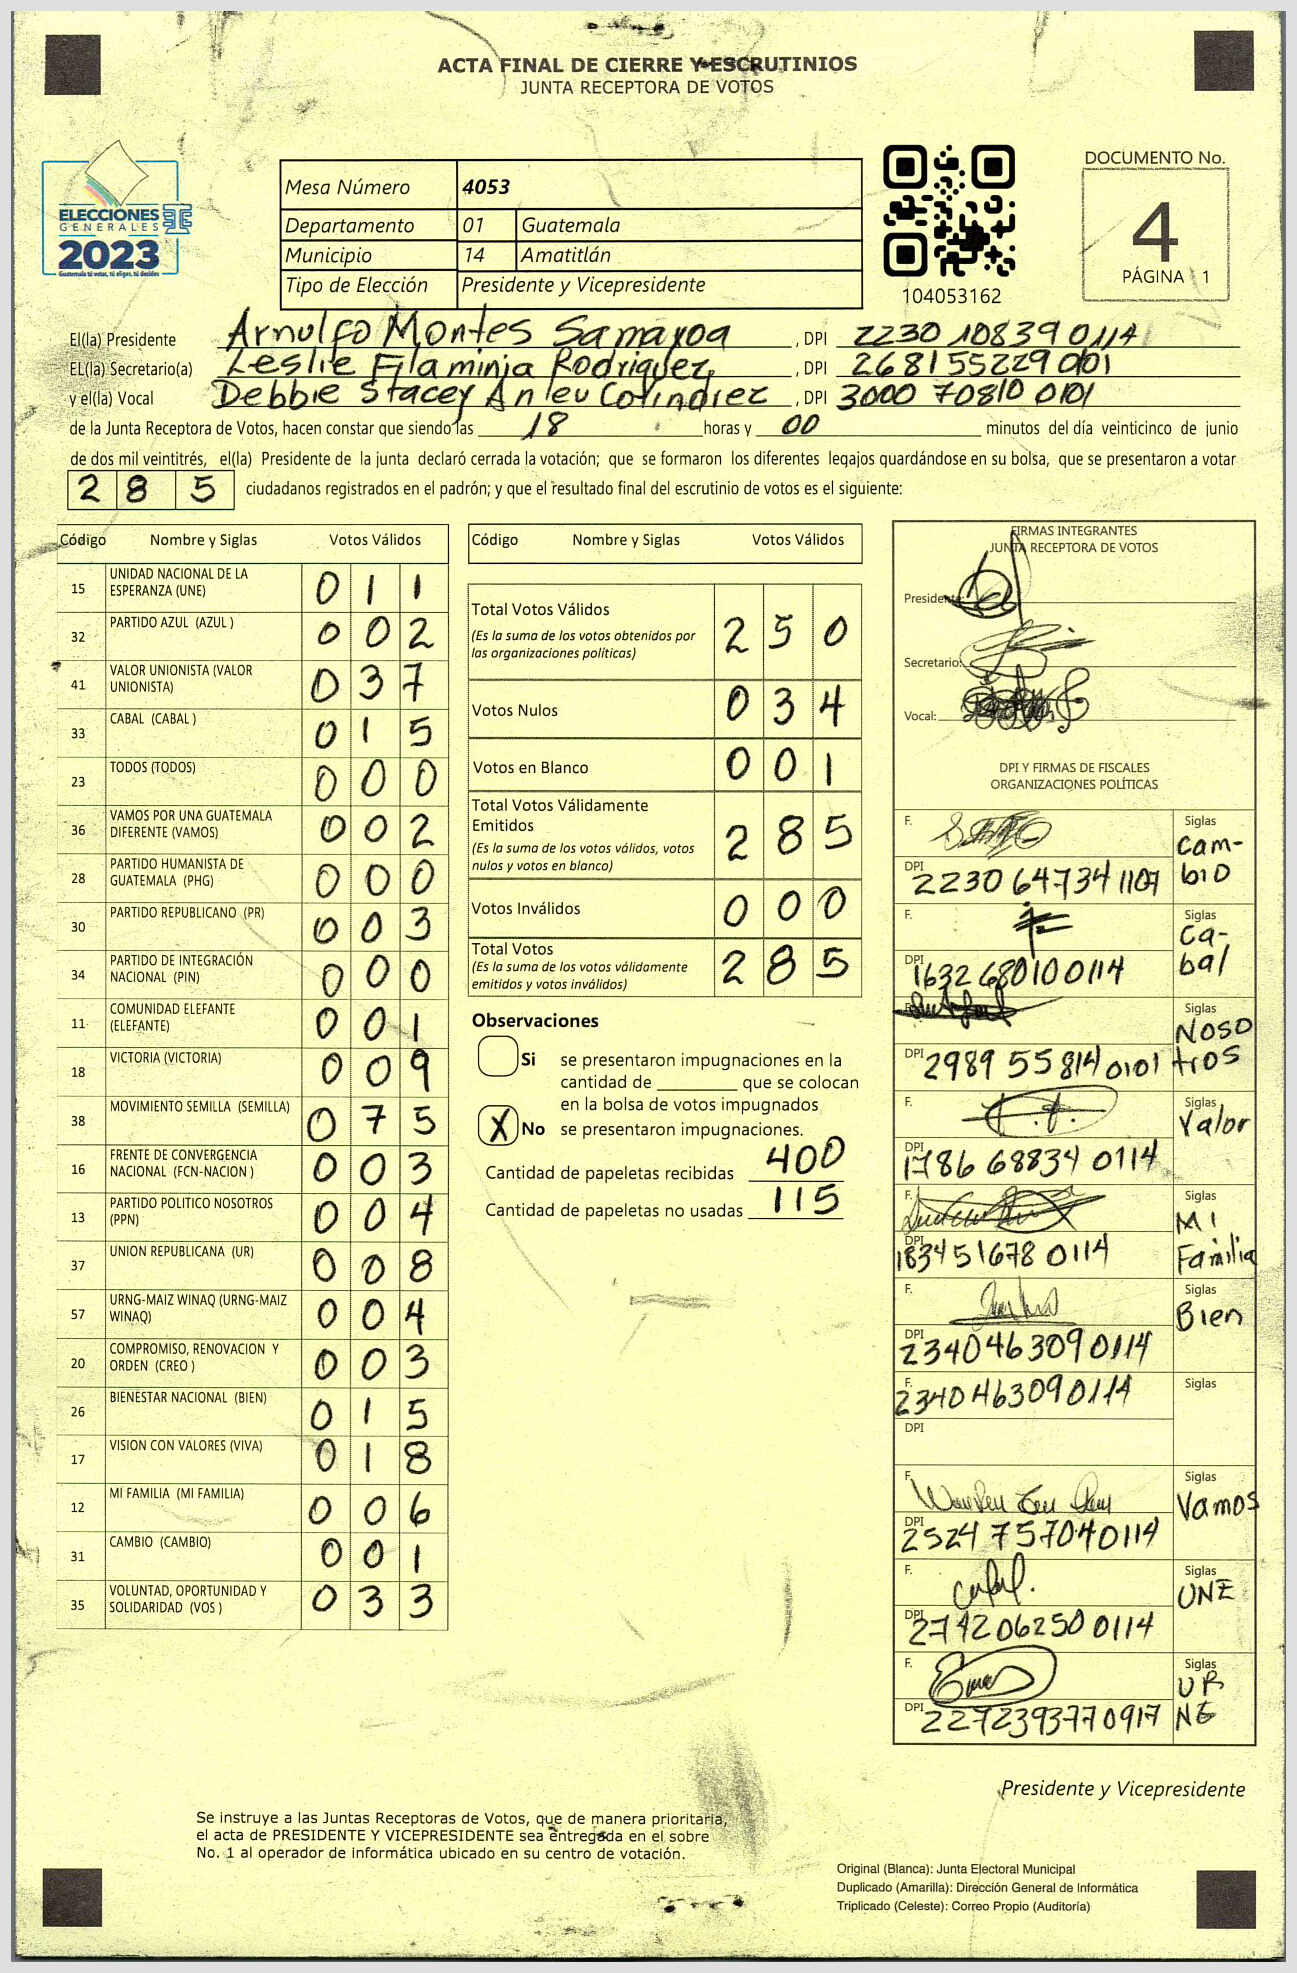 ACTA FINAL DE CIERRE Y ESCRUTINIOS
JUNTA RECEPTORA DE VOTOS
ELECCIONES
GENERALES
2023
Guatemala tú votas, tú eliges, tú decides
Mesa Número 4053
Departamento 01 Guatemala
Municipio 14 Amatitlán
Tipo de Elección Presidente y Vicepresidente
104053162
DOCUMENTO No.
4
PÁGINA 1
El(la) Presidente Arnulfo Montes Samayoa , DPI 2230 10839 0114
EL(la) Secretario(a) Leslie Filaminia Rodriguez , DPI 2681 55229 0101
y el(la) Vocal Debbie Stacey Anleu Cotindrez , DPI 3000 70810 0101
de la Junta Receptora de Votos, hacen constar que siendo las 18 horas y 00 minutos del día veinticinco de junio
de dos mil veintitrés, el(la) Presidente de la junta declaró cerrada la votación; que se formaron los diferentes legajos guardándose en su bolsa, que se presentaron a votar
285 ciudadanos registrados en el padrón; y que el resultado final del escrutinio de votos es el siguiente:
Código Nombre y Siglas Votos Válidos
15 UNIDAD NACIONAL DE LA ESPERANZA (UNE) 011
32 PARTIDO AZUL (AZUL ) 002
41 VALOR UNIONISTA (VALOR UNIONISTA) 037
33 CABAL (CABAL ) 015
23 TODOS (TODOS) 000
36 VAMOS POR UNA GUATEMALA DIFERENTE (VAMOS) 002
28 PARTIDO HUMANISTA DE GUATEMALA (PHG) 000
30 PARTIDO REPUBLICANO (PR) 003
34 PARTIDO DE INTEGRACIÓN NACIONAL (PIN) 000
11 COMUNIDAD ELEFANTE (ELEFANTE) 001
18 VICTORIA (VICTORIA) 009
38 MOVIMIENTO SEMILLA (SEMILLA) 075
16 FRENTE DE CONVERGENCIA NACIONAL (FCN-NACION ) 003
13 PARTIDO POLITICO NOSOTROS (PPN) 004
37 UNION REPUBLICANA (UR) 008
57 URNG-MAIZ WINAQ (URNG-MAIZ WINAQ) 004
20 COMPROMISO, RENOVACION Y ORDEN (CREO ) 003
26 BIENESTAR NACIONAL (BIEN) 015
17 VISION CON VALORES (VIVA) 018
12 MI FAMILIA (MI FAMILIA) 006
31 CAMBIO (CAMBIO) 001
35 VOLUNTAD, OPORTUNIDAD Y SOLIDARIDAD (VOS ) 033
Código Nombre y Siglas Votos Válidos
Total Votos Válidos 250
(Es la suma de los votos obtenidos por
las organizaciones políticas)
Votos Nulos 034
Votos en Blanco 001
Total Votos Válidamente
Emitidos 285
(Es la suma de los votos válidos, votos
nulos y votos en blanco)
Votos Inválidos 000
Total Votos 285
(Es la suma de los votos válidamente
emitidos y votos inválidos)
Observaciones
Si se presentaron impugnaciones en la
cantidad de ________ que se colocan
en la bolsa de votos impugnados
X No se presentaron impugnaciones.
Cantidad de papeletas recibidas 400
Cantidad de papeletas no usadas 115
FIRMAS INTEGRANTES
JUNTA RECEPTORA DE VOTOS
Presidente:
Secretario:
Vocal:
DPI Y FIRMAS DE FISCALES
ORGANIZACIONES POLÍTICAS
F. Siglas Cam-
DPI 2230 64734 1107 bio
F. Siglas Ca-
DPI 1632 68010 0114 bal
F. Siglas Noso
DPI 2989 55814 0101 tros
F. Siglas Valor
DPI 1786 68834 0114
F. Siglas Mi
DPI 1834 51678 0114 Familia
F. Siglas Bien
DPI 2340 46309 0114
F. 2340 463090114 Siglas
DPI
F. Siglas Vamos
DPI 2524 75704 0114
F. Siglas UNE
DPI 2742 06250 0114
F. Siglas UR
DPI 2272393770917 NG
Presidente y Vicepresidente
Se instruye a las Juntas Receptoras de Votos, que de manera prioritaria,
el acta de PRESIDENTE Y VICEPRESIDENTE sea entregada en el sobre
No. 1 al operador de informática ubicado en su centro de votación.
Original (Blanca): Junta Electoral Municipal
Duplicado (Amarilla): Dirección General de Informática
Triplicado (Celeste): Correo Propio (Auditoría)